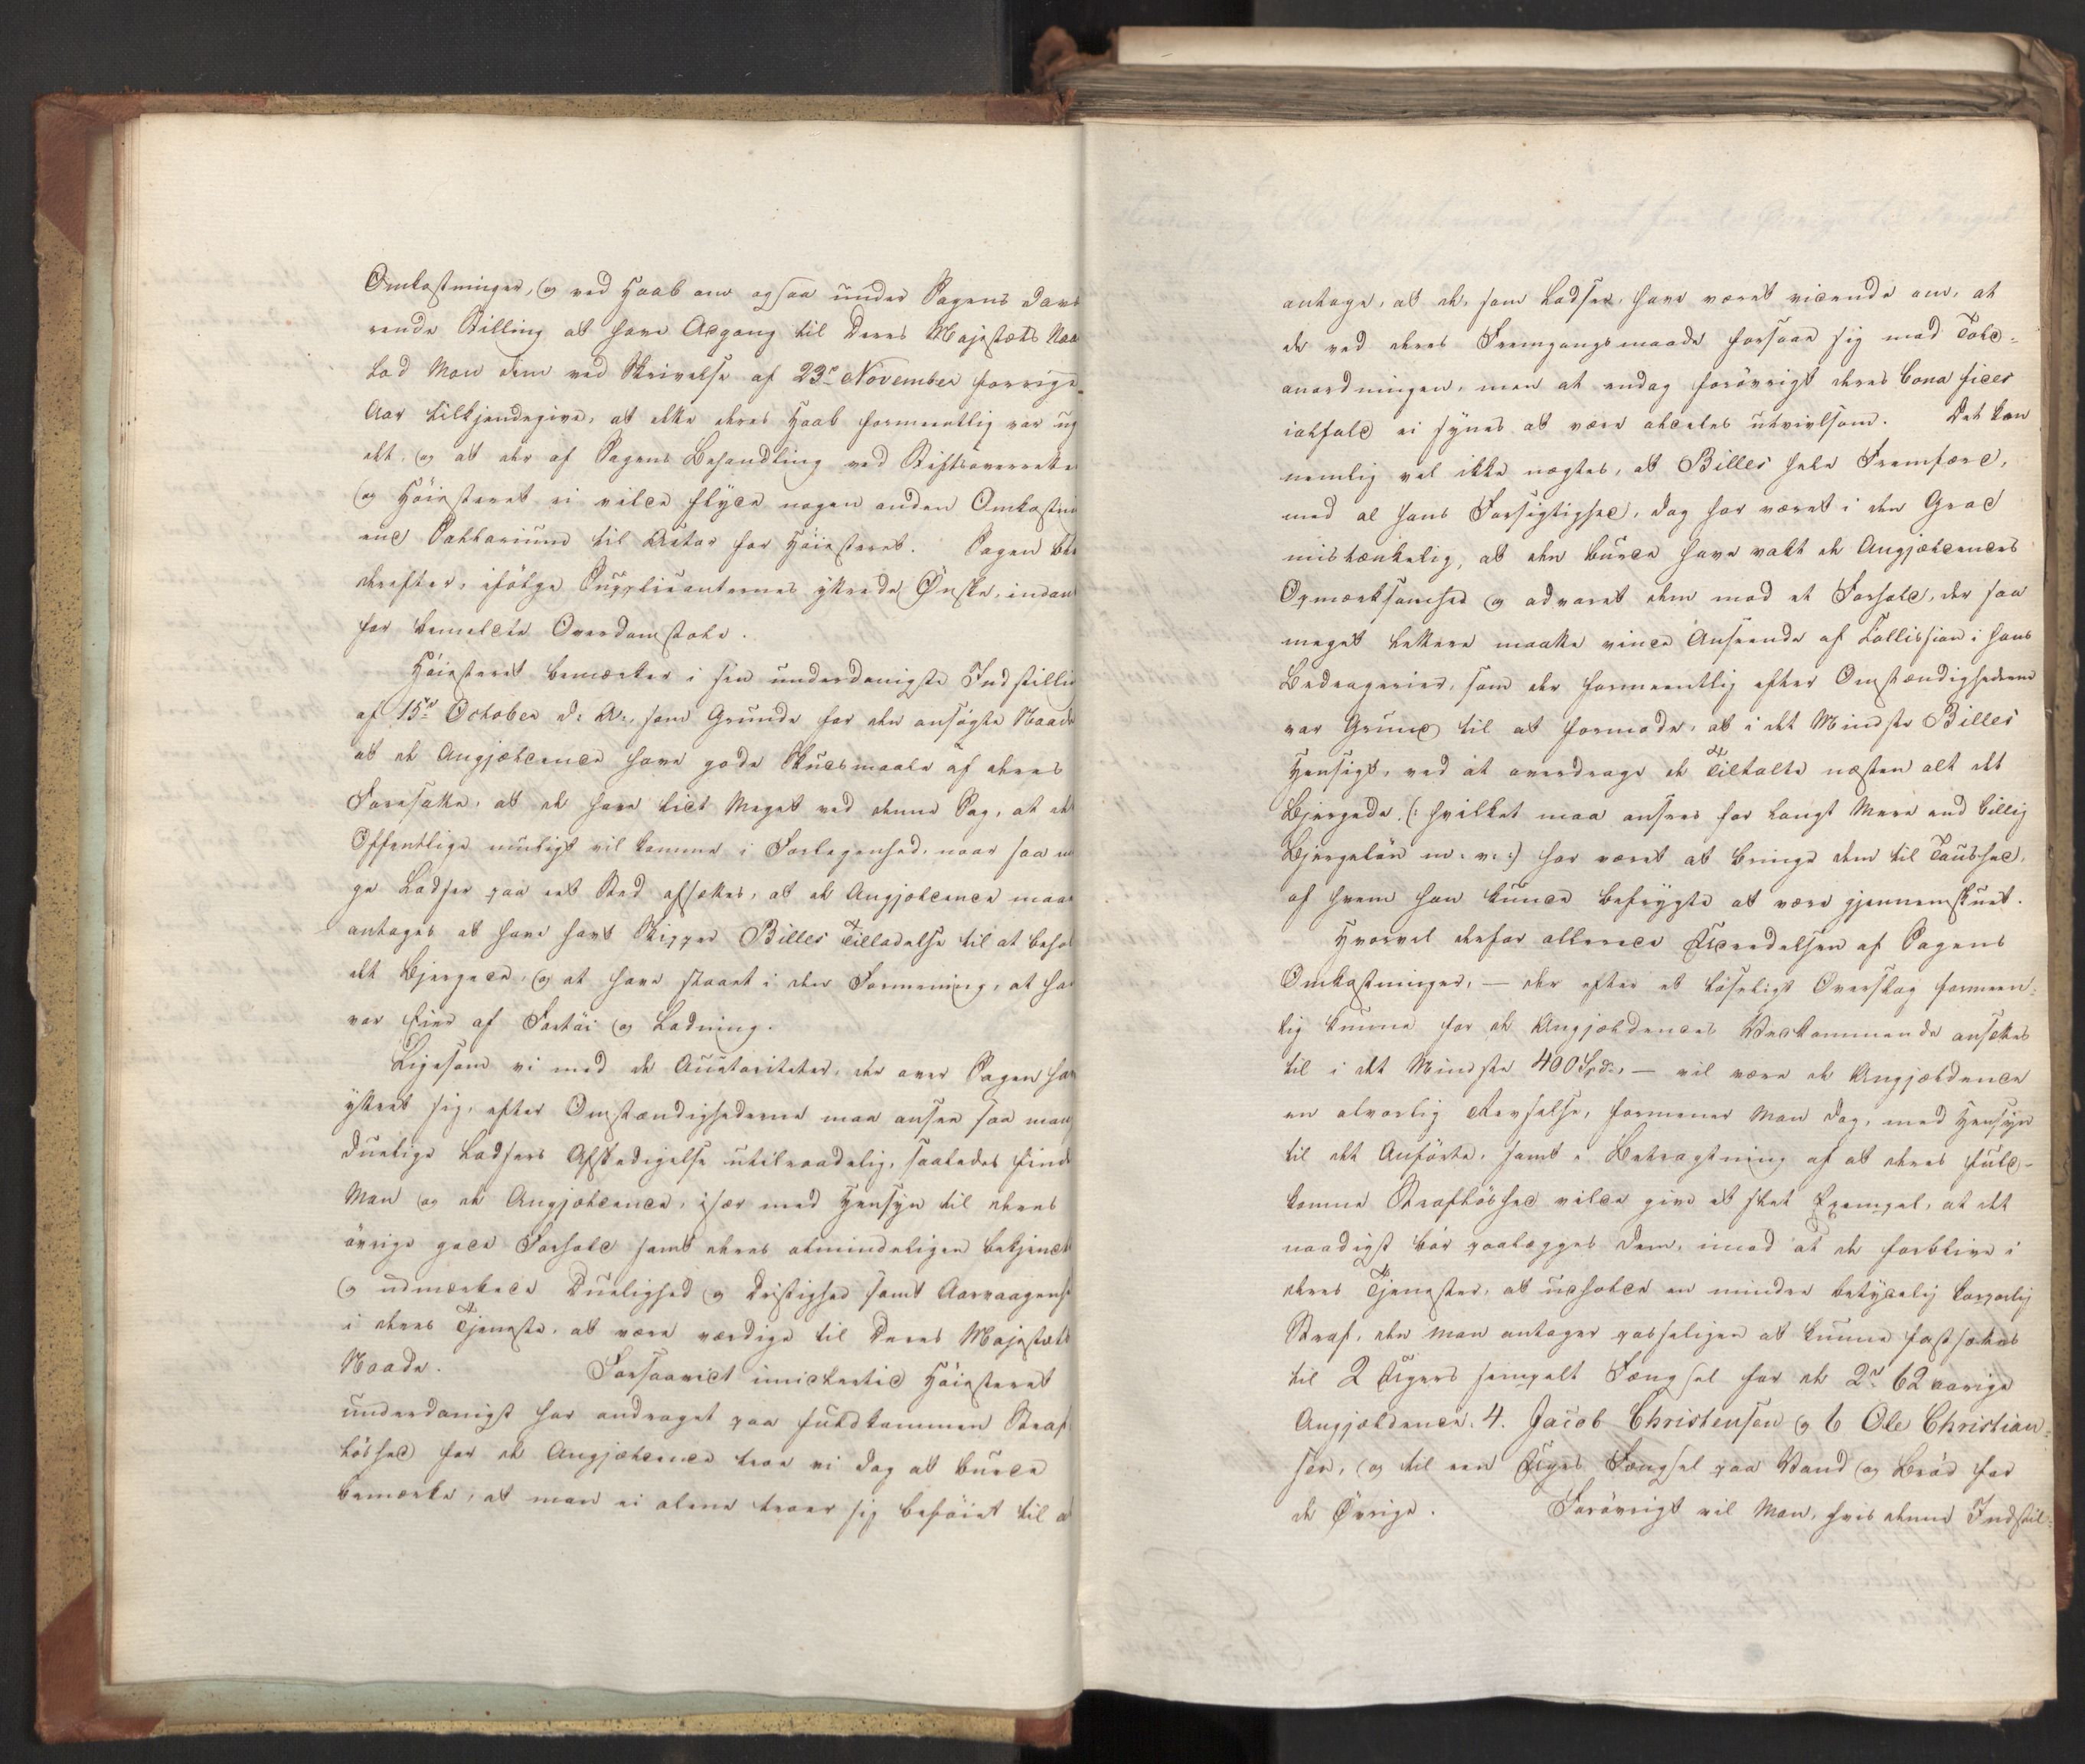 Omkostninger, og ved Haab om ogsaa under Sagens dava
rende Stilling at have Adgang til Deres Majestæts Naa
Lod Man dem ved Skrivelse af 23de November forrige
Aar tilkjendegive, at dette deres Haab formeentlig var ug
det, og at der af Sagens Behandling ved Stiftsoverrette
og Höiesteret ei vilde flyde nogen anden Omkostni
end Salarium til Actor for Höiesteret. Sagen ble
derefter, ifölge Supplicanternes yttrede Önske, indan
for bemeldte Överdomstole.
Höiesteret bemærker i sin underdanigste Indstillin
af 15de October d: A:, som Grunde for den ansögte Naade
at de Angjældende have gode Skudsmaale af deres
Foresatte, at de have lidt Meget ved denne Sag, at det
Offentlige muligt vil komme i Forlegenhed, naar saa m
ge Lodser paa eet Sted afsættes, at de Angjeldende maae
antages at have havt Skipper Billes Tilladelse til at behol
det Bjergede, og at have staaet i den Formening, at han
var Eier af Fartöi og Ladning.
Ligesom vi med de Auctoriteter, der over Sagen hav
yttret sig, efter Omstændighederne maa ansee saa mang
duelige Lodsers Afskedigelse utilraadelig, saaledes finde
Man og de Angjeldende, især med Hensyn til deres
övrige gode Forhold samt deres almindeligen bekjendt
og udmærkede Duelighed og Dristighed samt Aarvaagenh
i deres Tjeneste, at være værdige til Deres Majestæts
Naade. Forsaavidt imidlertid Höiesteret
underdanigst har andraget paa fuldkommen Straf
löshed for de Angjældende troe vi dog at burde
bemærke, at man ei alene troer sig beföiet til a
antage, at de, som Lodser, have været vidende om, at
de ved deres Fremgangsmaade forsaae sig mod Told-
anordningen, men at endog forövrigt deres bona fides
ialfald ei synes at være aldeles utvivlsom. Det kan
nemlig vel ikke nægtes, at Billes hele Fremfærd,
med al hans Forsigtighed, dog har været i den Grad
mistænkelig, at den burde have vakt de Angjældendes
Opmærksomhed og advaret dem mod et Forhold, der saa
meget lettere maatte vinde Anseende af Collission i hans
Bedragerier, som der formeentlig efter Omstændighederne
var Grund til at formode, at i det Mindste Billes
Hensigt, ved at overdrage de Tiltalte næsten alt det
Bjergede (: hvilket maa ansees for langt Mere end billig
Bjergelön m: v: :) har været at bringe dem til Taushed,
af hvem han kunde befrygte at være gjennemskuet.
Hvorvel derfor allerede Udredelsen af Sagens
Omkostninger, — der efter et löseligt Overslag formeen-
lig kunne for de Angjældendes Vedkommende ansættes
til i det Mindste 400 Spd:, — vil være de Angjældende
en alvorlig Revselse, formener Man dog, med Hensyn
til det Anförte, samt i Betragtning af at deres fuld-
komne Straflöshed vilde give et slet Exempel, at det
naadigst bör paalægges Dem, imod at de forblive i
deres Tjenester, at udholde en mindre betydelig korporlig
Straf, den Man antager passeligen at kunne fastsættes
til 2 Ugers simpelt Fængsel for de 2de 62 aarige
Angjældende, 4. Jacob Christensen og 6 Ole Christian-
sen, og til een Uges Fængsel paa Vand og Bröd for
de Övrige. Forövrigt vil Man, hvis denne Indstil-